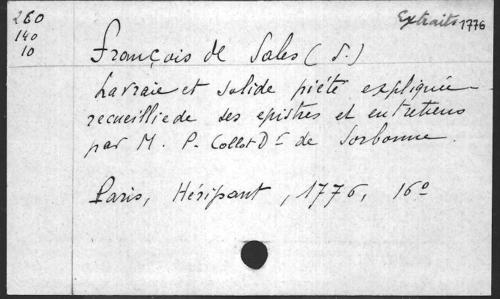 260
140
10
Extraits 1776
François de Sales (S.)
La vraie et solide piété expliquée
recueillie de ses epistres et entretiens
par M. P. Collot Dr de Sorbonne.
Paris, Hérissant, 1776, 16o